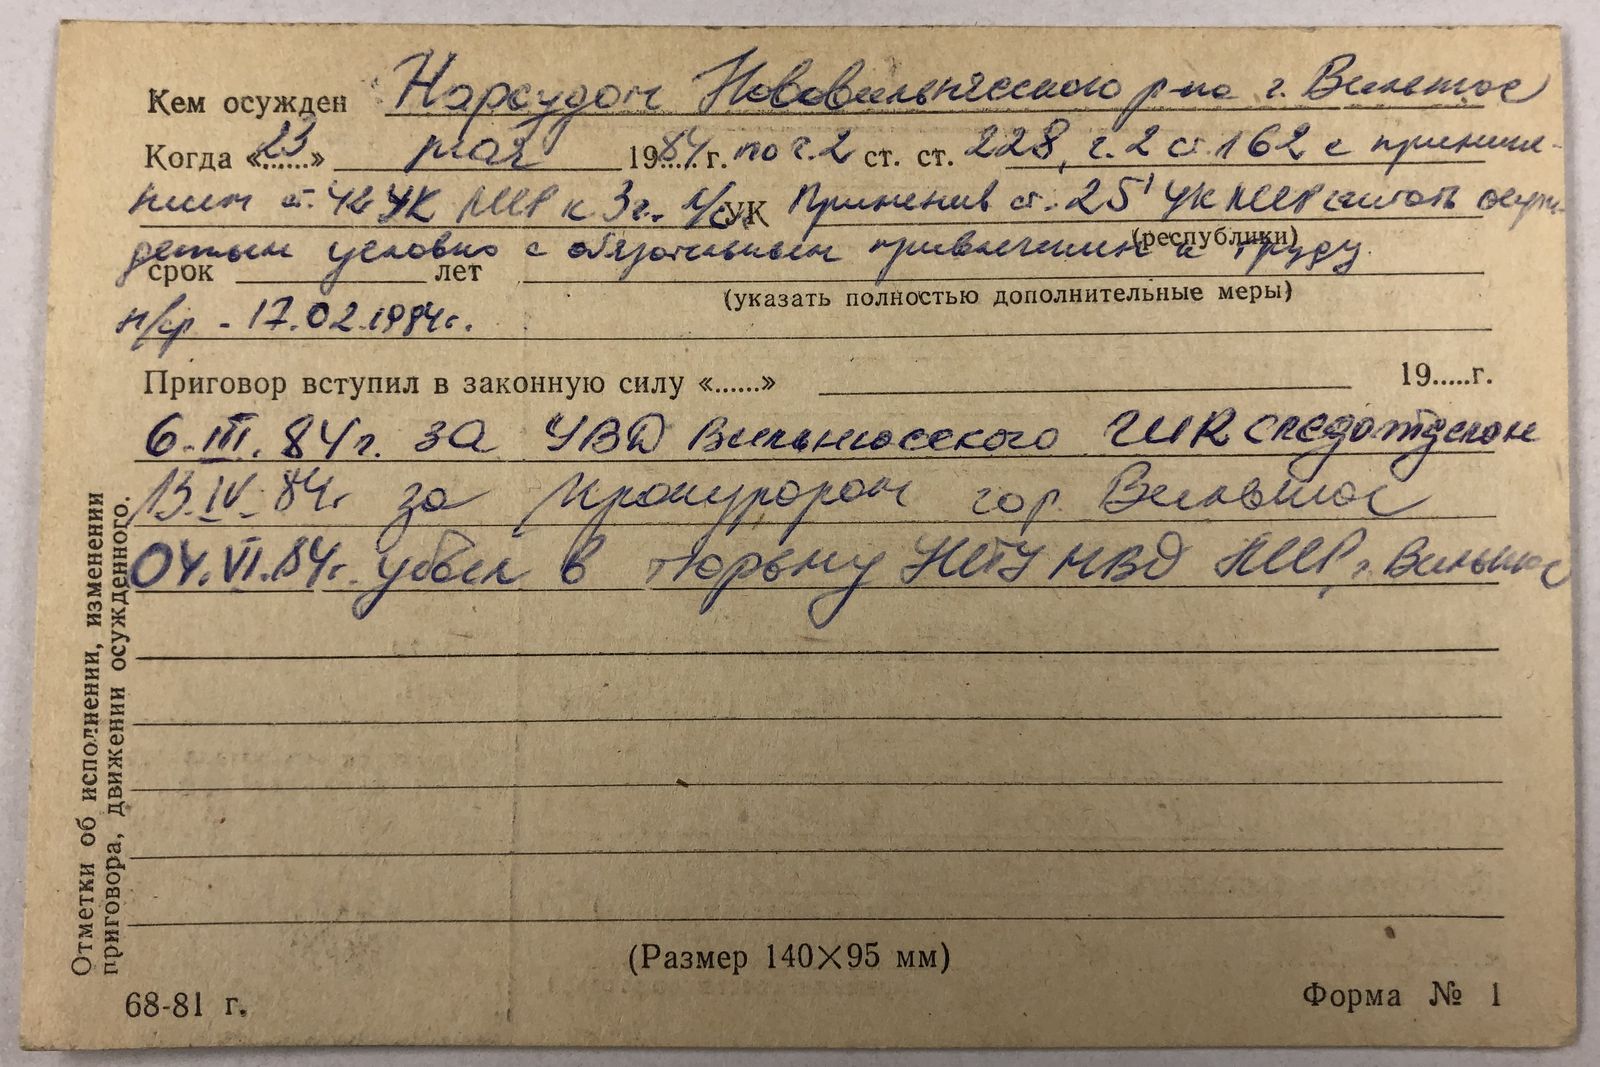 Кем осужден Нарсудом Нововильнясского р-на г. Вильнюс
Когда «23» мая 1984 г. по ч.2 ст. ст. 228, ч.2 ст. 162 с примене-
нием ст. 42 УК ЛССР к 3 г. л/св. УК Применив ст. 25¹ УК ЛССР считать осуж-
(республики)
денным условно с обязательным привлечением к труду
срок лет
(указать полностью дополнительные меры)
н/ср - 17.02.1984г.
Приговор вступил в законную силу «......» 19.....г.
6.III.84г. за УВД Вильнюсского ГИК спедотделом
13.IV.84г за прокурором гор. Вильнюс
04.VI.84г. убыл в тюрьму МВД ЛССР г. Вильнюс
Отметки об исполнении, изменении
приговора, движении осужденного.
(Размер 140×95 мм)
68-81 г. Форма № 1